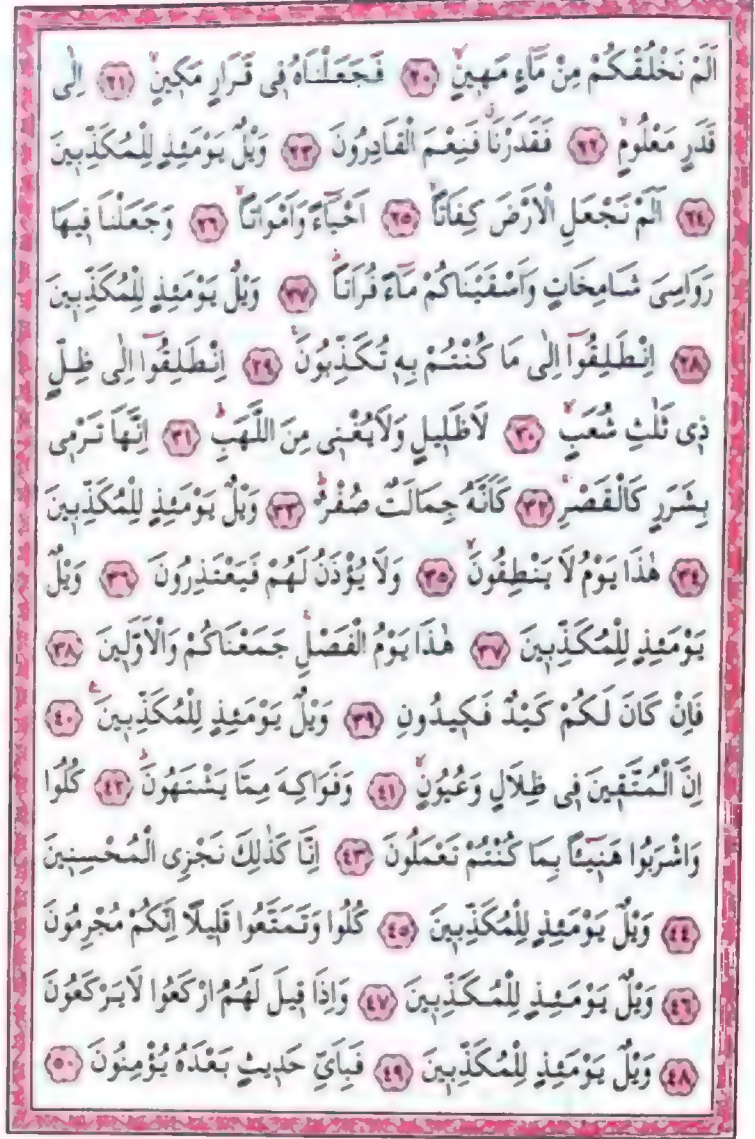 اَلَمْ نَخْلُقْكُمْ مِنْ مَٓاءٍ مَهٖينٍۙ ﴿٢٠﴾ فَجَعَلْنَاهُ فٖى قَرَارٍ مَكٖينٍۙ ﴿٢١﴾ اِلٰى
قَدَرٍ مَعْلُومٍۙ ﴿٢٢﴾ فَقَدَرْنَاۗ فَنِعْمَ الْقَادِرُونَ ﴿٢٣﴾ وَيْلٌ يَوْمَئِذٍ لِلْمُكَذِّبٖينَ
﴿٢٤﴾ اَلَمْ نَجْعَلِ الْاَرْضَ كِفَاتًاۙ ﴿٢٥﴾ اَحْيَٓاءً وَاَمْوَاتًاۙ ﴿٢٦﴾ وَجَعَلْنَا فٖيهَا
رَوَاسِىَ شَامِخَاتٍ وَاَسْقَيْنَاكُمْ مَٓاءً فُرَاتًاۜ ﴿٢٧﴾ وَيْلٌ يَوْمَئِذٍ لِلْمُكَذِّبٖينَ
﴿٢٨﴾ اِنْطَلِقُٓوا اِلٰى مَا كُنْتُمْ بِهٖ تُكَذِّبُونَۚ ﴿٢٩﴾ اِنْطَلِقُٓوا اِلٰى ظِلٍّ
ذٖى ثَلٰثِ شُعَبٍۙ ﴿٣٠﴾ لَا ظَلٖيلٍ وَلَا يُغْنٖى مِنَ اللَّهَبِۜ ﴿٣١﴾ اِنَّهَا تَرْمٖى
بِشَرَرٍ كَالْقَصْرِۚ ﴿٣٢﴾ كَاَنَّهُ جِمَالَتٌ صُفْرٌۜ ﴿٣٣﴾ وَيْلٌ يَوْمَئِذٍ لِلْمُكَذِّبٖينَ
﴿٣٤﴾ هٰذَا يَوْمُ لَا يَنْطِقُونَۙ ﴿٣٥﴾ وَلَا يُؤْذَنُ لَهُمْ فَيَعْتَذِرُونَ ﴿٣٦﴾ وَيْلٌ
يَوْمَئِذٍ لِلْمُكَذِّبٖينَ ﴿٣٧﴾ هٰذَا يَوْمُ الْفَصْلِۚ جَمَعْنَاكُمْ وَالْاَوَّلٖينَ ﴿٣٨﴾
فَاِنْ كَانَ لَكُمْ كَيْدٌ فَكٖيدُونِ ﴿٣٩﴾ وَيْلٌ يَوْمَئِذٍ لِلْمُكَذِّبٖينَ ع ﴿٤٠﴾
اِنَّ الْمُتَّقٖينَ فٖى ظِلَالٍ وَعُيُونٍۙ ﴿٤١﴾ وَفَوَاكِهَ مِمَّا يَشْتَهُونَۜ ﴿٤٢﴾ كُلُوا
وَاشْرَبُوا هَنٖٓيـًٔا بِمَا كُنْتُمْ تَعْمَلُونَ ﴿٤٣﴾ اِنَّا كَذٰلِكَ نَجْزِى الْمُحْسِنٖينَ
﴿٤٤﴾ وَيْلٌ يَوْمَئِذٍ لِلْمُكَذِّبٖينَ ﴿٤٥﴾ كُلُوا وَتَمَتَّعُوا قَلٖيلًا اِنَّكُمْ مُجْرِمُونَ
﴿٤٦﴾ وَيْلٌ يَوْمَئِذٍ لِلْمُكَذِّبٖينَ ﴿٤٧﴾ وَاِذَا قٖيلَ لَهُمُ ارْكَعُوا لَا يَرْكَعُونَ
﴿٤٨﴾ وَيْلٌ يَوْمَئِذٍ لِلْمُكَذِّبٖينَ ﴿٤٩﴾ فَبِاَىِّ حَدٖيثٍ بَعْدَهُ يُؤْمِنُونَ ﴿٥٠﴾